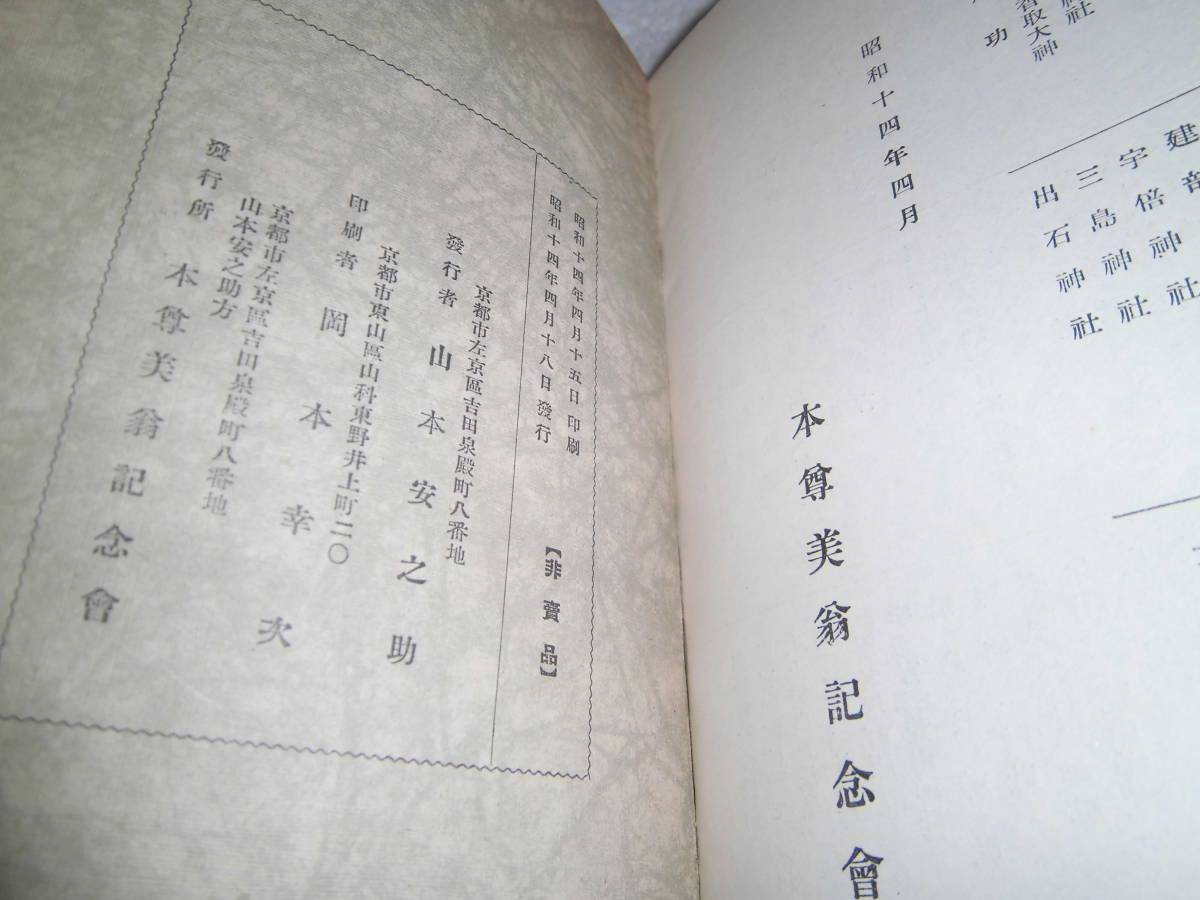 神社
香取大神
功
建部神社
宇倍神社
三島神社
出石神社
昭和十四年四月
本尊美翁記念會
昭和十四年四月十五日印刷
昭和十四年四月十八日發行
【非賣品】
京都市左京區吉田泉殿町八番地
發行者 山本安之助
京都市東山區山科東野井上町二〇
印刷者 岡本幸次
京都市左京區吉田泉殿町八番地
山本安之助方
發行所 本尊美翁記念會